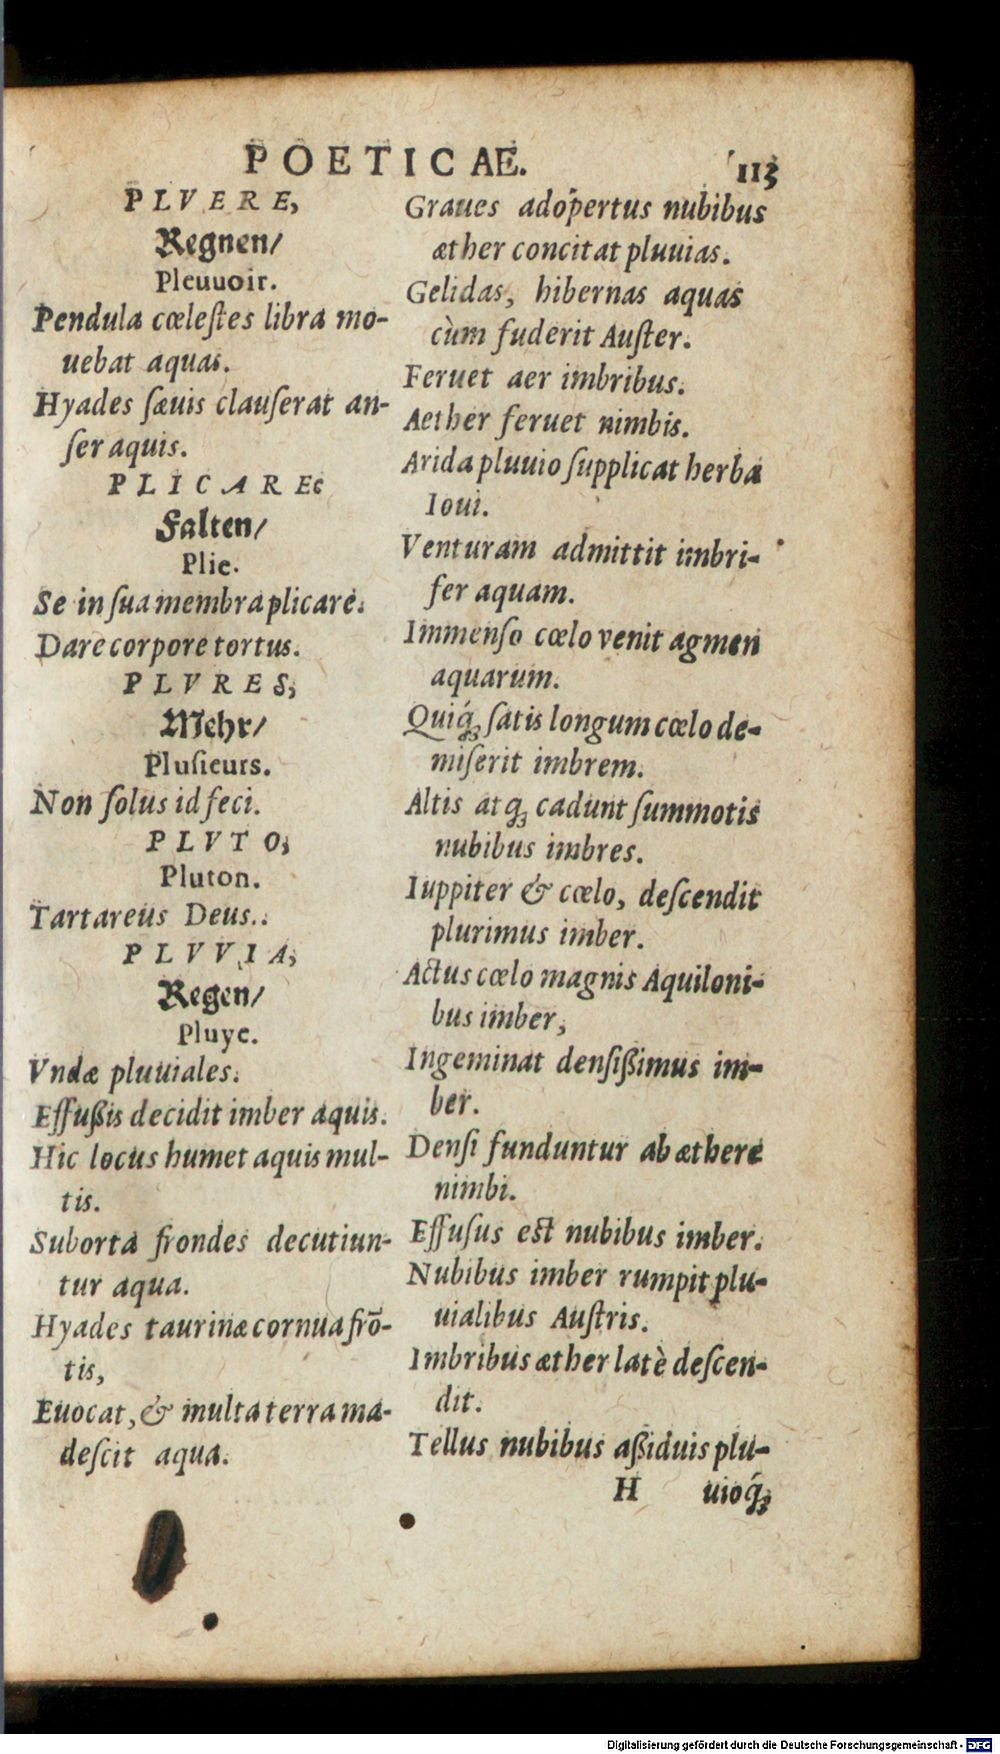 POETICAE. 113
PLVERE,
Regnen/
Pleuuoir.
Pendula cœleſtes libra mo-
uebat aquas.
Hyades ſæuis clauſerat an-
ſer aquis.
PLICARE
Falten/
Plie.
Se in ſua membra plicare.
Dare corpore tortus.
PLVRES,
Mehr/
Pluſieurs.
Non ſolus id feci.
PLVTO,
Pluton.
Tartareus Deus..
PLVVIA,
Regen/
Pluye.
Vndæ pluuiales.
Effußis decidit imber aquis.
Hic locus humet aquis mul-
tis.
Suborta frondes decutiun-
tur aqua.
Hyades taurinæ cornua frō-
tis,
Euocat, & multa terra ma-
deſcit aqua.
Graues adopertus nubibus
æther concitat pluuias.
Gelidas, hibernas aquas
cùm fuderit Auſter.
Feruet aer imbribus.
Aether feruet nimbis.
Arida pluuio ſupplicat herba
Ioui.
Venturam admittit imbri-
fer aquam.
Immenſo cœlo venit agmen
aquarum.
Quiq́; ſatis longum cœlo de-
miſerit imbrem.
Altis atq; cadunt ſummotis
nubibus imbres.
Iuppiter & cœlo, deſcendit
plurimus imber.
Actus cœlo magnis Aquiloni-
bus imber,
Ingeminat denſißimus im-
ber.
Denſi funduntur ab æthere
nimbi.
Effuſus eſt nubibus imber.
Nubibus imber rumpit plu-
uialibus Auſtris.
Imbribus æther latè deſcen-
dit.
Tellus nubibus aßiduis plu-
H uioq́;
Digitalisierung gefördert durch die Deutsche Forschungsgemeinschaft - DFG